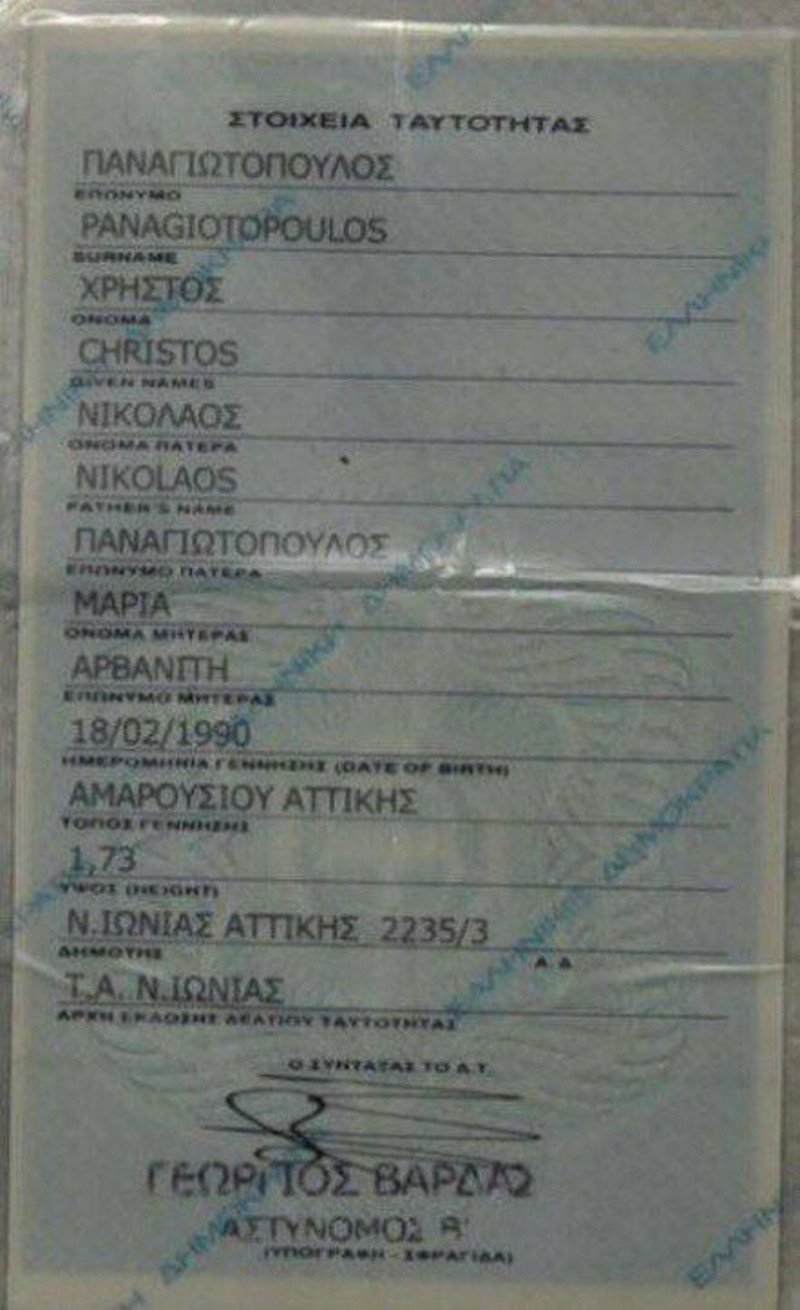 ΣΤΟΙΧΕΙΑ ΤΑΥΤΟΤΗΤΑΣ
ΠΑΝΑΓΙΩΤΟΠΟΥΛΟΣ
ΕΠΩΝΥΜΟ
PANAGIOTOPOULOS
SURNAME
ΧΡΗΣΤΟΣ
ΟΝΟΜΑ
CHRISTOS
GIVEN NAMES
ΝΙΚΟΛΑΟΣ
ΟΝΟΜΑ ΠΑΤΕΡΑ
NIKOLAOS
FATHER'S NAME
ΠΑΝΑΓΙΩΤΟΠΟΥΛΟΣ
ΕΠΩΝΥΜΟ ΠΑΤΕΡΑ
ΜΑΡΙΑ
ΟΝΟΜΑ ΜΗΤΕΡΑΣ
ΑΡΒΑΝΙΤΗ
ΕΠΩΝΥΜΟ ΜΗΤΕΡΑΣ
18/02/1990
ΗΜΕΡΟΜΗΝΙΑ ΓΕΝΝΗΣΗΣ (DATE OF BIRTH)
ΑΜΑΡΟΥΣΙΟΥ ΑΤΤΙΚΗΣ
ΤΟΠΟΣ ΓΕΝΝΗΣΗΣ
1,73
ΥΨΟΣ (HEIGHT)
Ν.ΙΩΝΙΑΣ ΑΤΤΙΚΗΣ 2235/3
ΔΗΜΟΤΗΣ Α.Δ.
Τ.Α. Ν.ΙΩΝΙΑΣ
ΑΡΧΗ ΕΚΔΟΣΗΣ ΔΕΛΤΙΟΥ ΤΑΥΤΟΤΗΤΑΣ
Ο ΣΥΝΤΑΞΑΣ ΤΟ Δ.Τ.
ΓΕΩΡΓΙΟΣ ΒΑΡΔΑΣ
ΑΣΤΥΝΟΜΟΣ Β'
(ΥΠΟΓΡΑΦΗ - ΣΦΡΑΓΙΔΑ)
ΕΛΛΗΝΙΚΗ ΔΗΜΟΚΡΑΤΙΑ